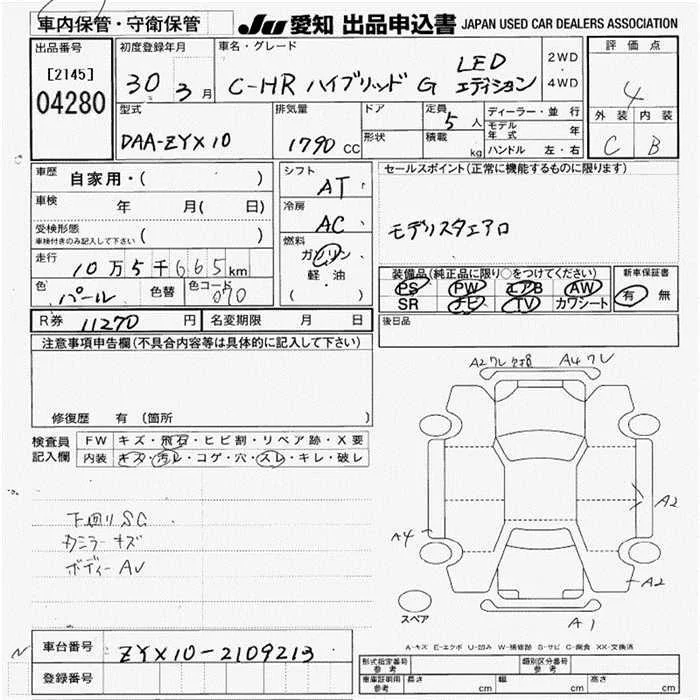 車内保管・守衛保管
JU 愛知 出品申込書 JAPAN USED CAR DEALERS ASSOCIATION
出品番号
[2145]
04280
初度登録年月
30 3月
車名・グレード
C-HR ハイブリッド G LED エディション
2WD
・
4WD
評価点
4
外装 内装
C B
型式
DAA-ZYX10
排気量
1790 CC
ドア
形状
定員 5人
積載 kg
ディーラー・並行
モデル年式 年
ハンドル 左・右
車歴 自家用・( )
車検 年 月( 日)
受検形態
車検付きのみ記入して下さい ( )
走行 10万5千665km
色 パール 色替 色コード 070
シフト
AT
冷房
AC
燃料
ガソリン
・
軽・油
( )
セールスポイント(正常に機能するものに限ります)
モデリスタエアロ
装備品(純正品に限り○をつけてください)
PS PW エアB AW
SR ナビ TV カワシート
新車保証書
有 無
R券 11270円 名変期限 月 日
後日品
注意事項申告欄(不具合内容等は具体的に記入して下さい)
修復歴 有 (箇所
検査員
記入欄
FW キズ・飛石・ヒビ割・リペア跡・X要
内装 キズ・汚レ・コゲ・穴・スレ・キレ・破レ
下回りSG
カミラーキズ
ボディーAU
A2ワレ A4ワレ
A4
A2
A2
A1
スペア
A-キズ E-エクボ U-凹み W-補修跡 S-サビ C-腐食 XX-交換済
車台番号 ZYX10-2109213
登録番号
形式指定番号
参考
類別区分番号
参考
車庫証明用
参考
長さ cm 幅 cm 高さ cm